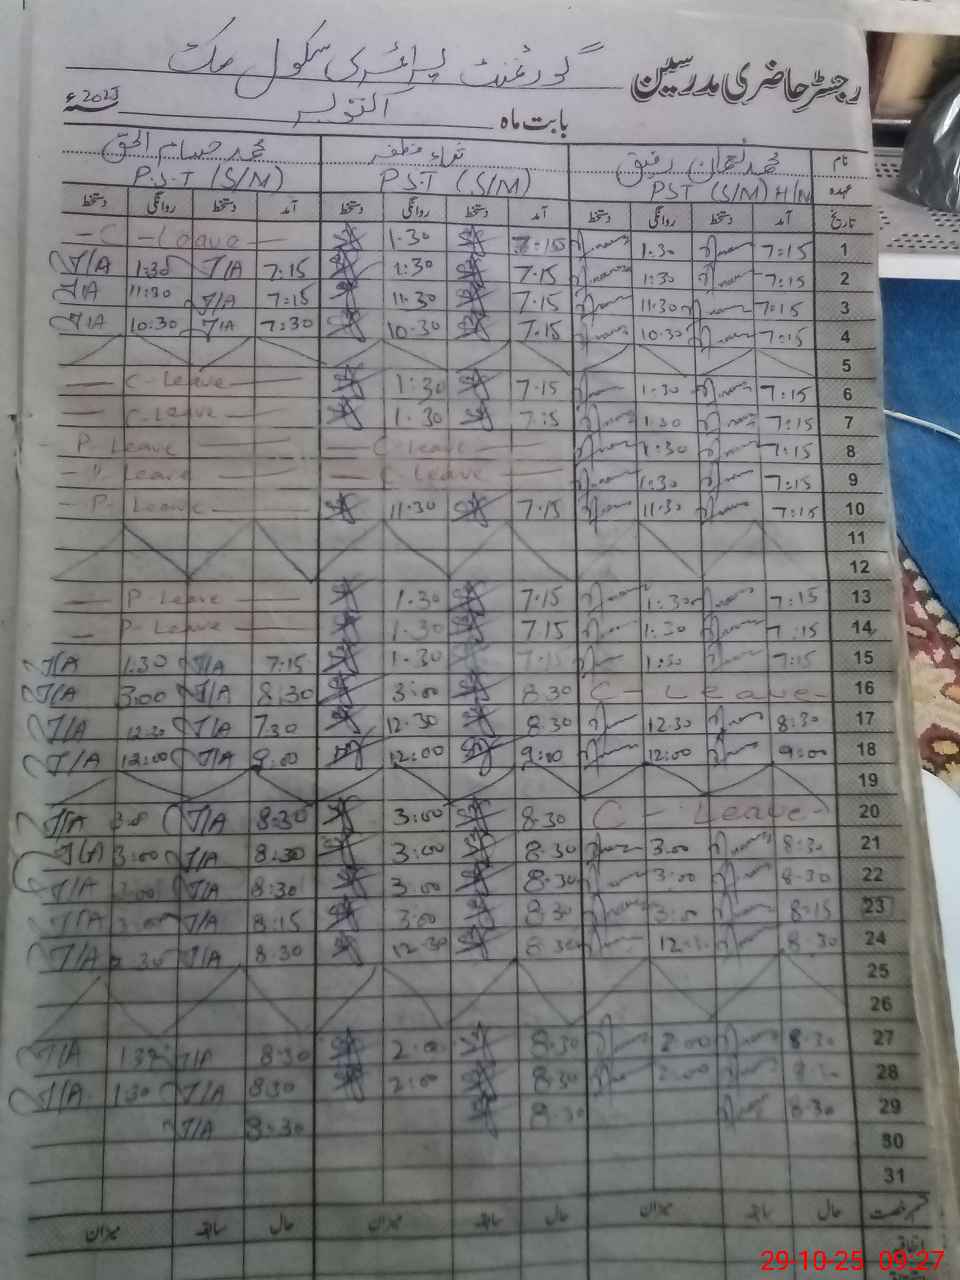 رجسٹر حاضری مدرسین گورنمنٹ پرائمری سکول
بابت ماہ اکتوبر 2025ء
نام محمد نعمان رفیق ثناء مظفر محمد حسام الحق
عہدہ PST (S/M) H/M P.S.T (S/M) P.S.T (S/M)
تاریخ آمد دستخط روانگی دستخط آمد دستخط روانگی دستخط آمد دستخط روانگی دستخط
— C - Leave — 1.30 7:15 1.30 7:15 1
J/A 1:30 J/A 7:15 1:30 7.15 1:30 7:15 2
J/A 11:30 J/A 7:15 11.30 7.15 11:30 7:15 3
J/A 10:30 J/A 7:30 10.30 7.15 10.30 7:15 4
5
— C - Leave — 1.30 7.15 1.30 7:15 6
— C - Leave — 1.30 7:5 1:30 7:15 7
P - Leave — — C - Leave — 1:30 7:15 8
— " - Leave — — C - Leave — 1:30 7:15 9
— P - Leave — 11.30 7.15 11.30 7:15 10
11
12
— P - Leave — 1.30 7.15 1:30 7:15 13
— P - Leave — 1.30 7.15 1:30 7:15 14
J/A 1:30 J/A 7:15 1.30 7:15 1:30 7:15 15
J/A 3:00 J/A 8:30 3:00 8.30 C - Leave - 16
J/A 12:30 J/A 7:30 12.30 8.30 12.30 8:30 17
J/A 12:00 J/A 9:00 12:00 9:00 12:00 9:00 18
19
J/A J/A 8:30 3:00 8.30 C - Leave - 20
J/A 3:00 J/A 8:30 3:00 8.30 3.00 8:30 21
J/A 3:00 J/A 8:30 3:00 8.30 3:00 8:30 22
J/A 3:00 J/A 8:15 3:00 8:30 8:15 23
J/A J/A 8:30 12.30 8:30 8:30 24
25
26
J/A J/A 8:30 2:00 8:30 2:00 8:30 27
J/A 1:30 J/A 8:30 2:00 8:30 2:00 28
J/A 8:30 8:30 8:30 29
30
31
حال سابقہ میزان حال سابقہ میزان حال سابقہ میزان
اتفاقیہ
29-10-25 09:27